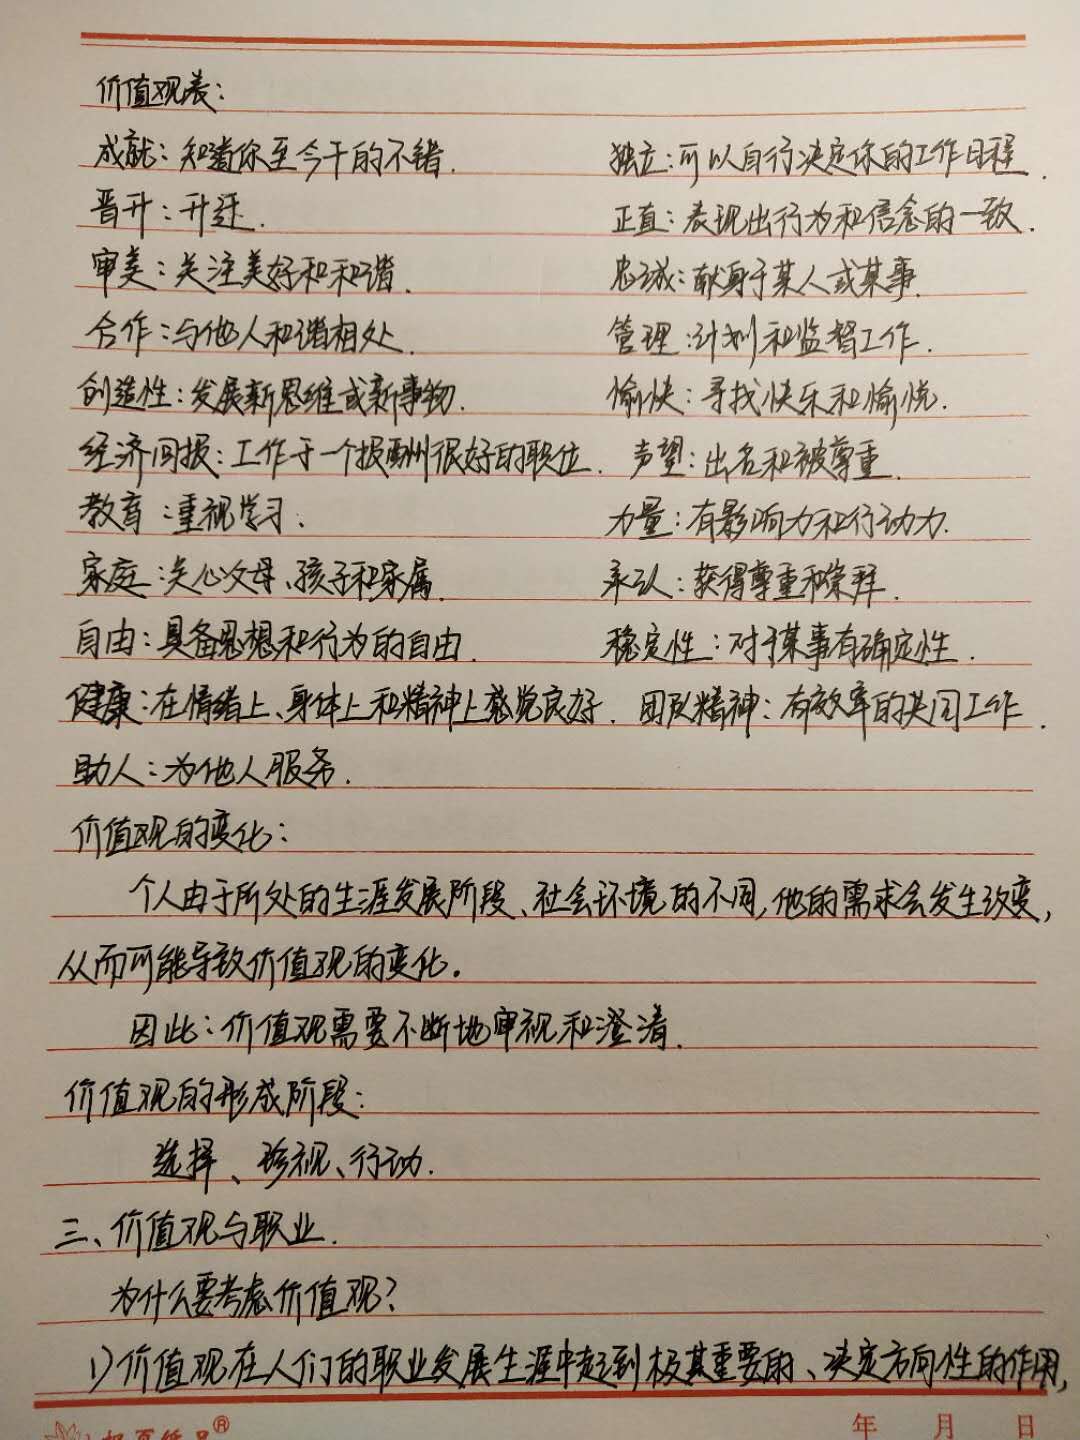 价值观表:
成就:知道你至今干的不错. 独立:可以自行决定你的工作日程.
晋升:升迁. 正直:表现出行为和信念的一致.
审美:关注美好和和谐. 忠诚:献身于某人或某事.
合作:与他人和谐相处. 管理:计划和监督工作.
创造性:发展新思维或新事物. 愉快:寻找快乐和愉悦.
经济回报:工作于一个报酬很好的职位. 声望:出名和被尊重.
教育:重视学习、 力量:有影响力和行动力.
家庭:关心父母、孩子和家属. 承认:获得尊重和崇拜.
自由:具备思想和行为的自由. 稳定性:对于某事有确定性.
健康:在情绪上、身体上和精神上感觉良好. 团队精神:有效率的共同工作.
助人:为他人服务.
价值观的变化:
个人由于所处的生涯发展阶段、社会环境的不同,他的需求会发生改变,
从而可能导致价值观的变化。
因此:价值观需要不断地审视和澄清.
价值观的形成阶段:
选择、珍视、行动.
三、价值观与职业.
为什么要考虑价值观?
1)价值观在人们的职业发展生涯中起到极其重要的、决定方向性的作用,
年 月 日